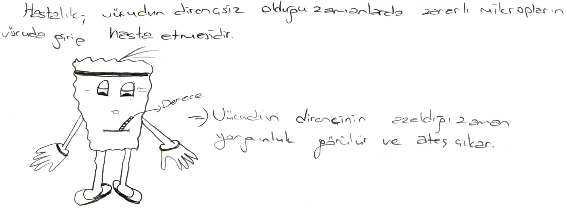 Hastalık; vücudun dirençsiz olduğu zamanlarda zararlı mikropların
vücuda girip hasta etmesidir.
Derece
=) Vücudun direncinin azaldığı zaman
yorgunluk görülür ve ateş çıkar.